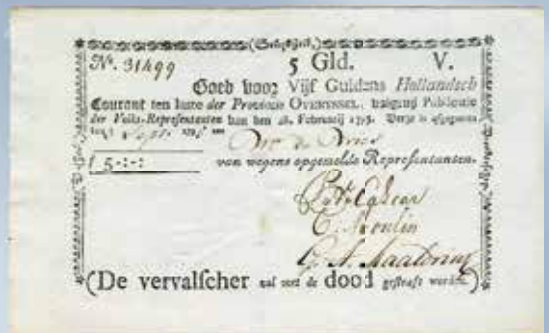 Nº. 31499 5 Gld. V.
Goed voor Vijf Guldens Hollandsch
Courant ten laste der Provincie OVERYSSEL, volgens Publicatie
der Volks-Representanten van den 28. Februarij 1795. Deeze is afgegeven
Sept. 1795 aan de Vries
f 5-:-: van wegens opgemelde Representanten.
(De vervalscher zal met de dood gestraft worden.)